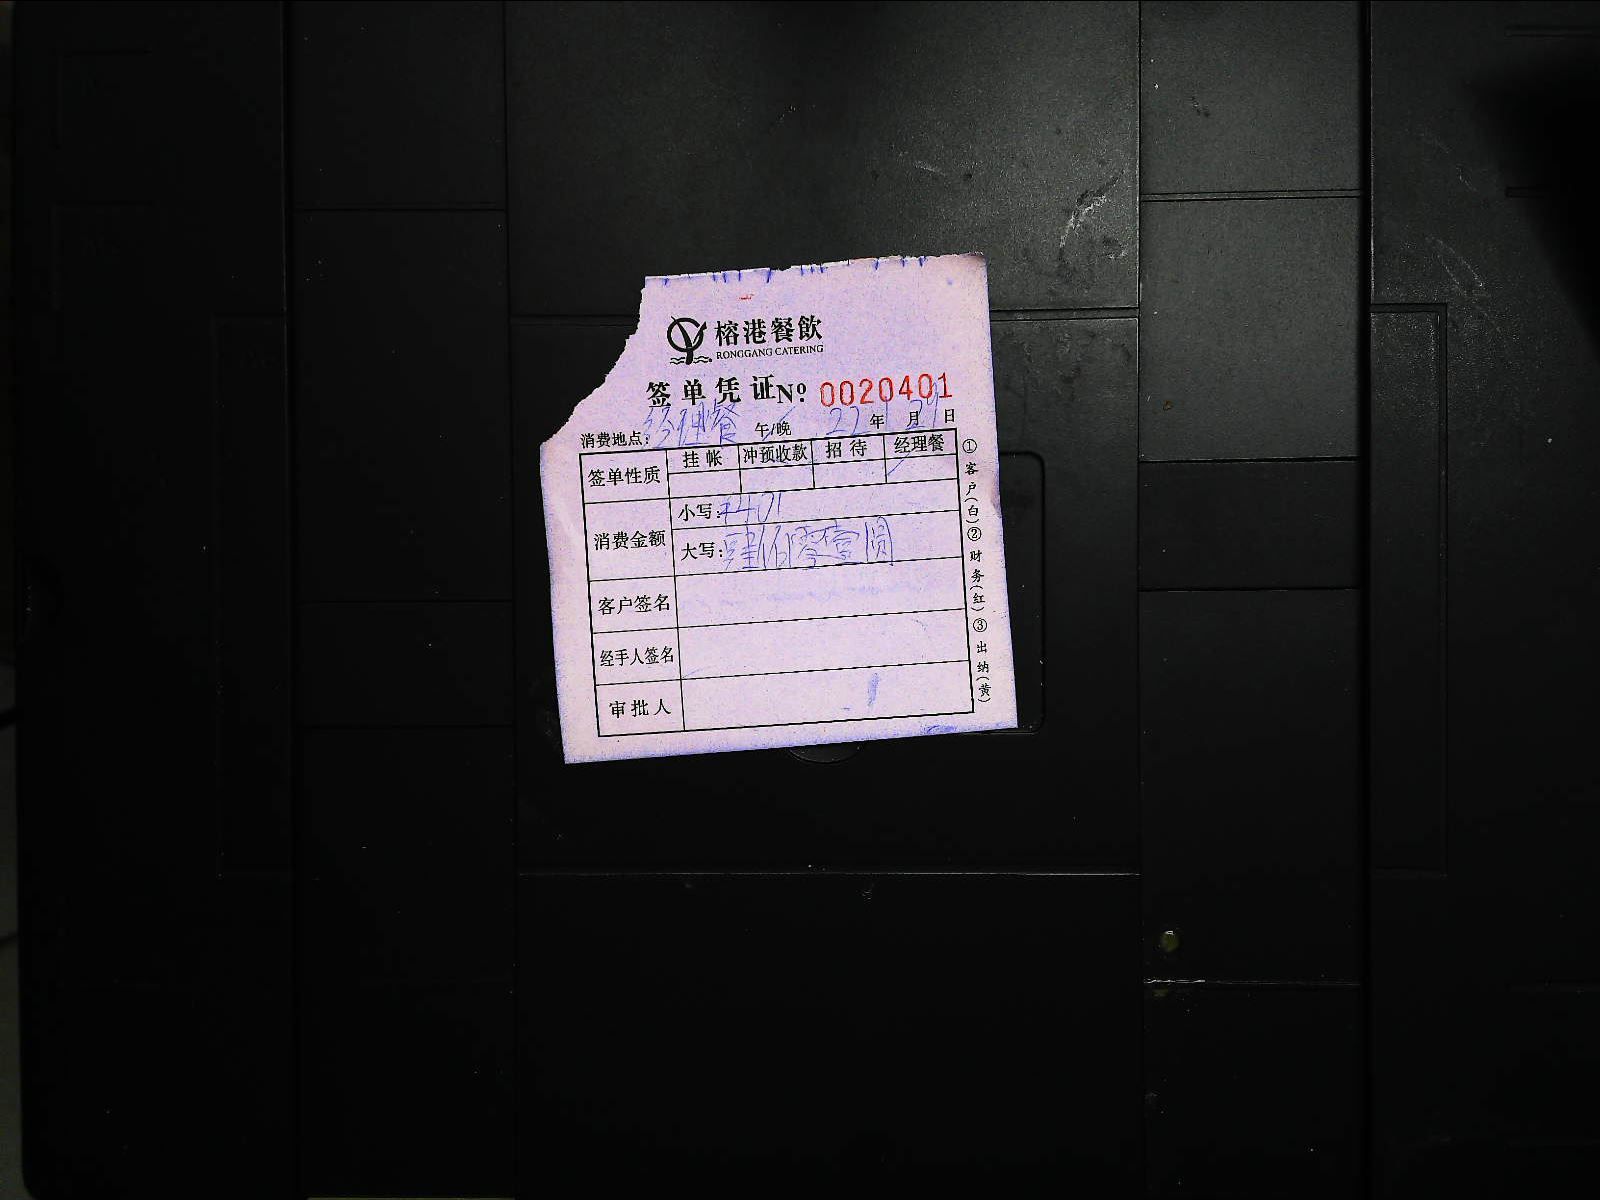 榕港餐飲
RONGGANG CATERING
签单凭证 Nº 0020401
消费地点: 经理餐 午/晚 22年 1月 29日
签单性质 挂帐 冲预收款 招待 经理餐
消费金额 小写: ¥401
大写: 肆佰零壹圆
客户签名
经手人签名
审批人
①客户(白)②财务(红)③出纳(黄)